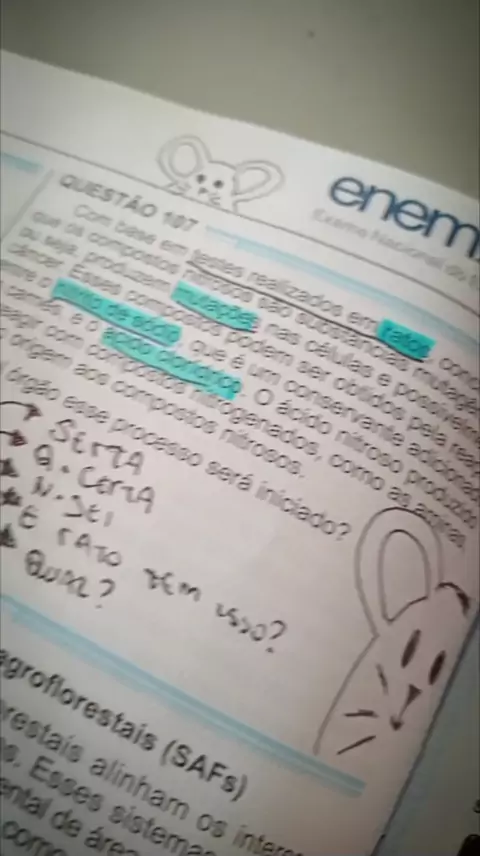 enem
Exame Nacional do
QUESTÃO 107
Com base em testes realizados em ratos,
que os compostos nitrosos são substâncias mutagê
ou seja, produzem mutações nas células e possivelme
câncer. Esses compostos podem ser obtidos pela rea
entre o nitrito de sódio, que é um conservante adicionad
carnes, e o ácido clorídrico. O ácido nitroso produzido
reagir com compostos nitrogenados, como as aminas
origem aos compostos nitrosos.
órgão esse processo será iniciado?
SERIA
A. CERTA
N. SEI
E RATO TEM ISSO?
QUAL?
agroflorestais (SAFs)
restais alinham os intere
s. Esses sistema
ental de áre
como